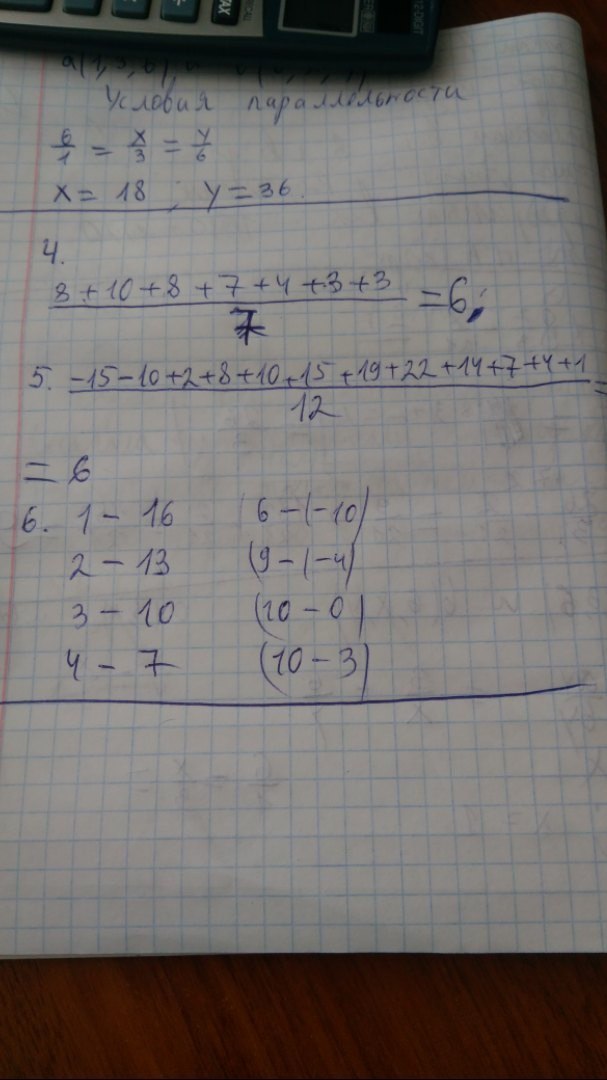 TAX
12 DIGIT
Условия параллельности
6/1 = x/3 = y/6
x = 18 ; y = 36.
4.
8 + 10 + 8 + 7 + 4 + 3 + 3 / 7 = 6;
5. -15-10+2+8+10+15+19+22+14+7+4+1 / 12 =
= 6
6. 1 - 16 (6-(-10)
2 - 13 (9-(-4)
3 - 10 (10-0)
4 - 7 (10-3)